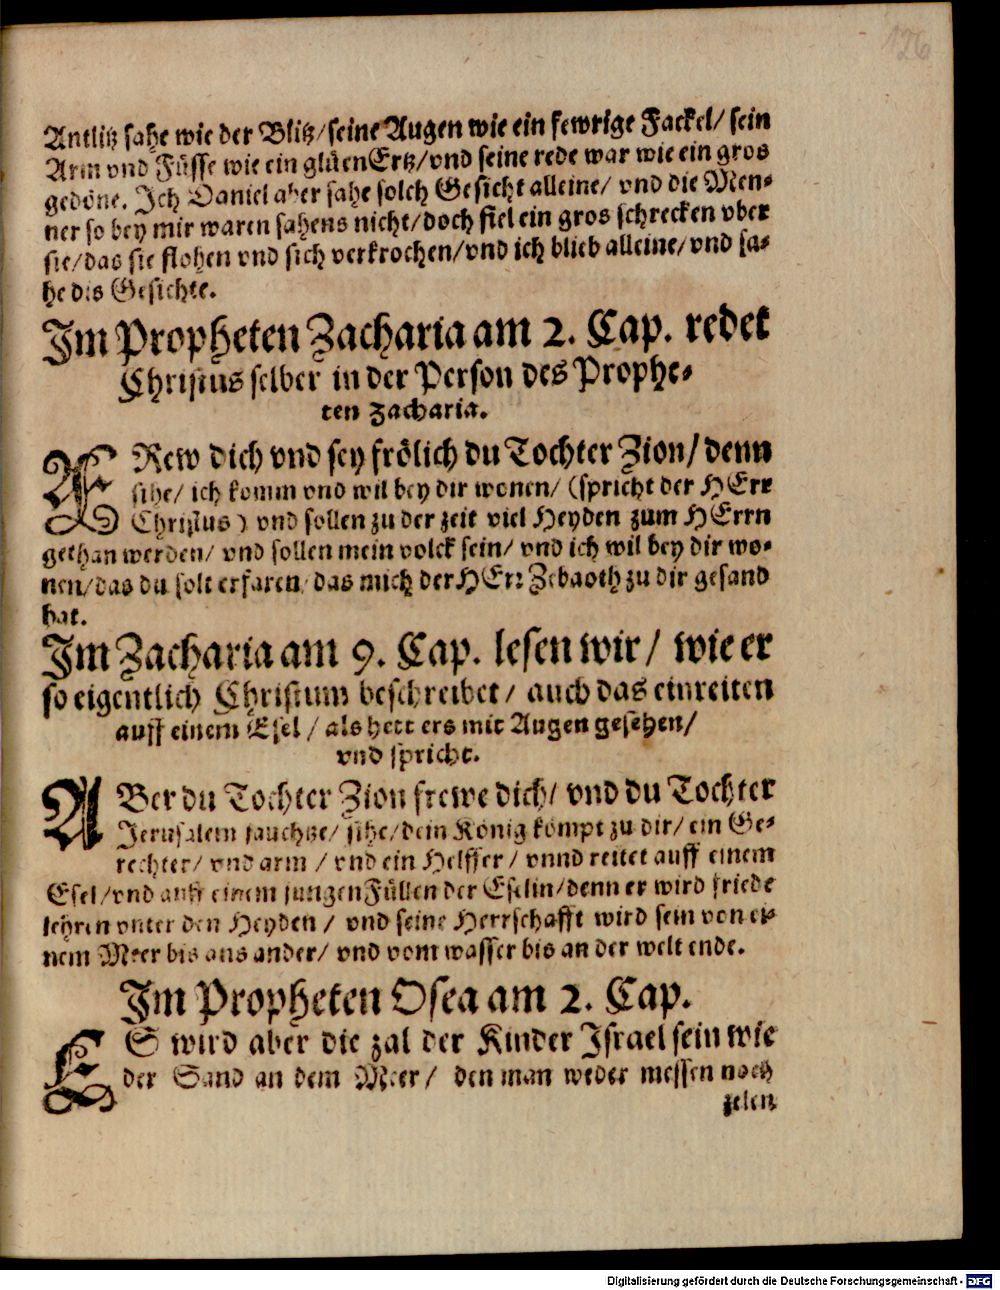 126
Antlitz sahe wie der Blitz/seine Augen wie ein fewrige Fackel/sein
Arm vnd Füsse wie ein glüen Ertz/vnd seine rede war wie ein gros
gedöne. Ich Daniel aber sahe solch Gesicht alleine/ vnd die Men-
ner so bey mir waren sahens nicht/doch fiel ein gros schrecken vber
sie/das sie flohen vnd sich verkrochen/vnd ich blieb alleine/vnd sa-
he dis Gesichte.
Im Propheten Zacharia am 2. Cap. redet
Christus selber in der Person des Prophe-
ten Zacharia.
FRew dich vnd sey frölich du Tochter Zion/denn
sihe/ ich komm vnd wil bey dir wonen/ (spricht der HErr
Christus) vnd sollen zu der zeit viel Heyden zum HErrn
gethan werden/ vnd sollen mein volck sein/ vnd ich wil bey dir wo-
nen/das du solt erfaren/das mich der HErr Zebaoth zu dir gesand
hat.
Im Zacharia am 9. Cap. lesen wir/ wie er
so eigentlich Christum beschreibet/ auch das einreiten
auff einem Esel/als hett ers mit Augen gesehen/
vnd spricht.
ABer du Tochter Zion frewe dich/ vnd du Tochter
Jerusalem jauchtze/ sihe/dein König kömpt zu dir/ ein Ge-
rechter/ vnd arm / vnd ein Helffer/ vnnd reitet auff einem
Esel/vnd auff einem jungen Füllen der Eselin/denn er wird friede
lehren vnter den Heyden/ vnd seine Herrschafft wird sein von ei-
nem Meer bis ans ander/ vnd vom wasser bis an der welt ende.
Im Propheten Osea am 2. Cap.
ES wird aber die zal der Kinder Israel sein wie
der Sand an dem Meer/ den man weder messen noch
zelen
Digitalisierung gefördert durch die Deutsche Forschungsgemeinschaft - DFG